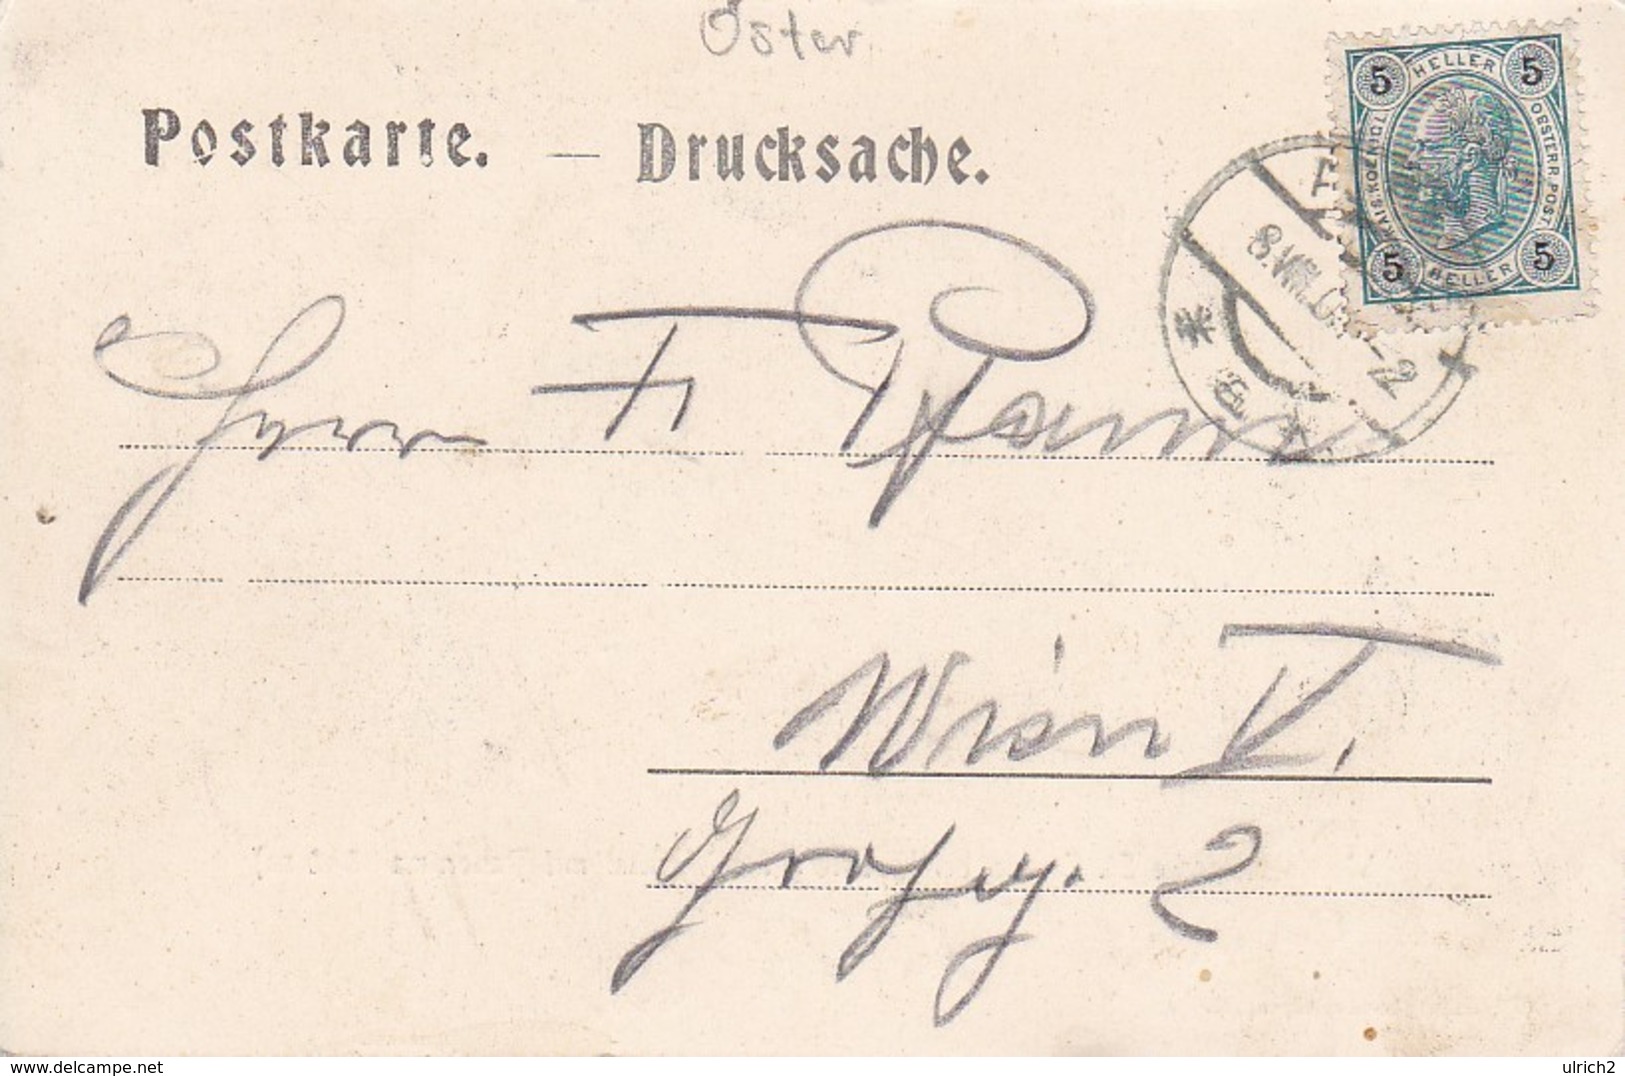 Öster
Postkarte. — Drucksache.
5 HELLER 5
KAIS. KÖNIGL. OESTERR. POST
5 HELLER 5
8.VIII.0 -2
Herrn F
Wien V.
2
www.delcampe.net
ulrich2